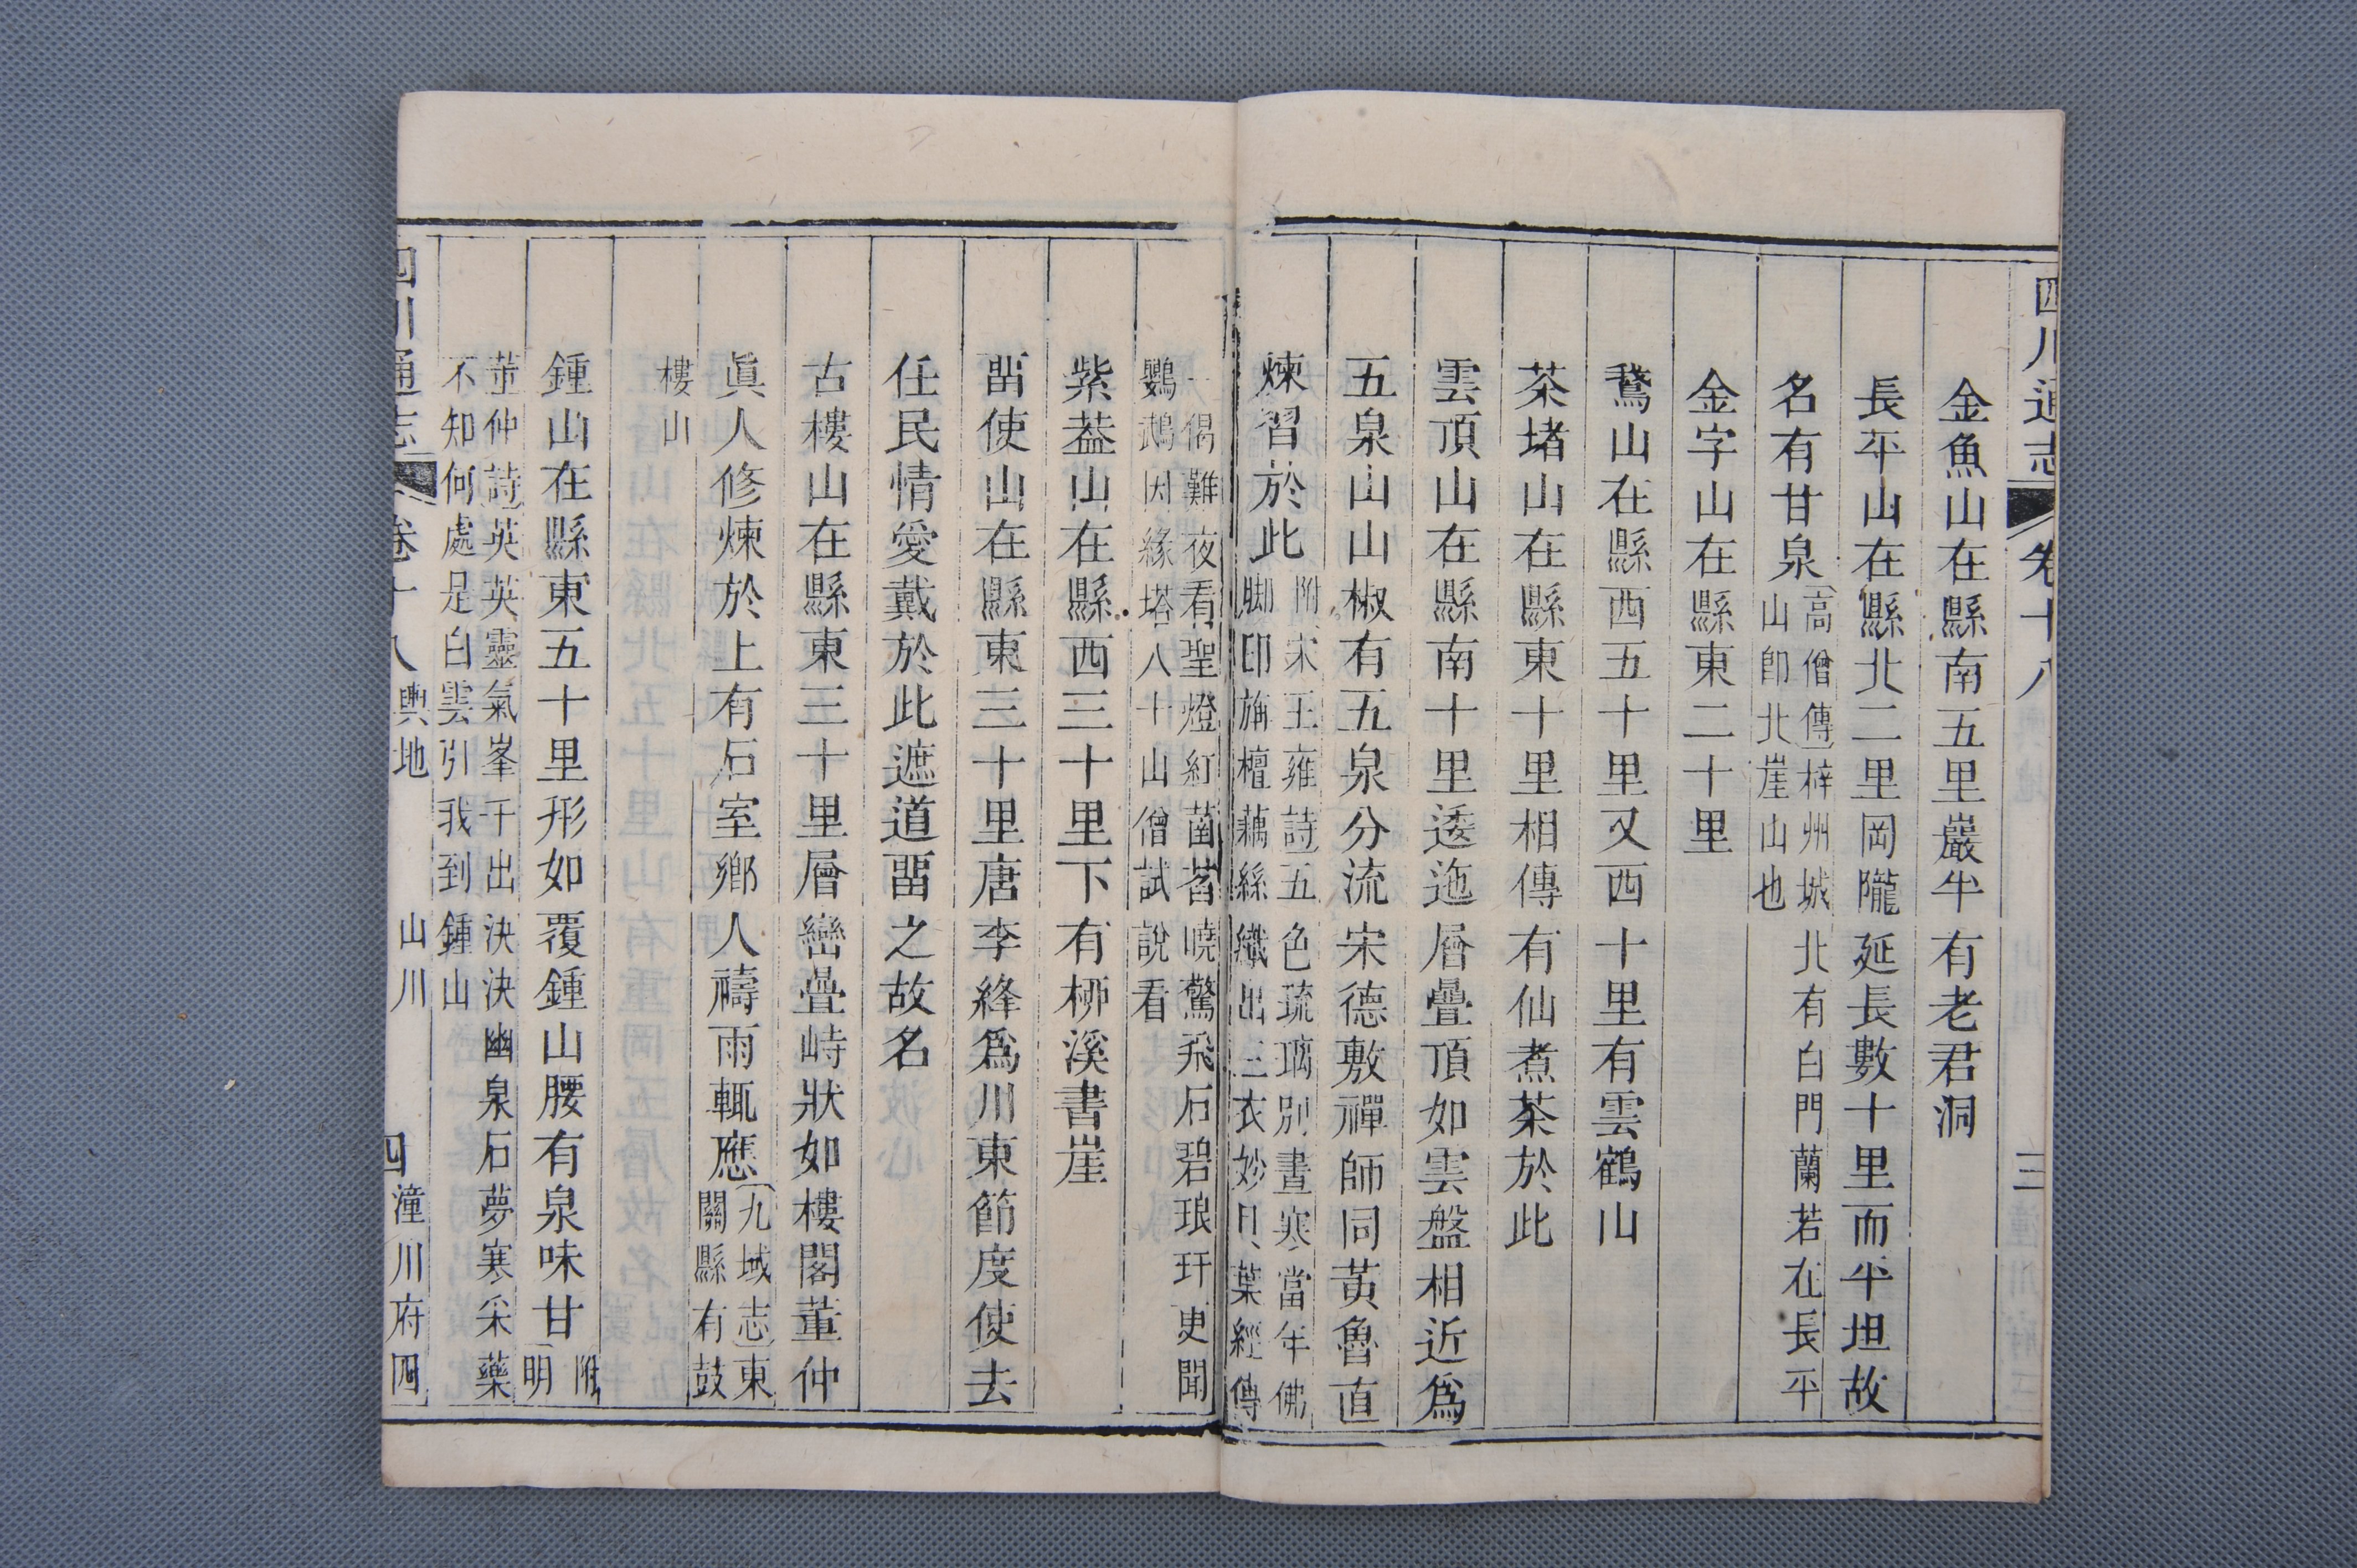 四川通志 卷十八 三
金魚山在縣南五里巖半有老君洞
長平山在縣北二里岡隴延長數十里而平坦故
名有甘泉
高僧傳梓州城北有白門蘭若在長平
山即北崖山也
金字山在縣東二十里
鵞山在縣西五十里又西十里有雲鶴山
茶堵山在縣東十里相傳有仙煮茶於此
雲頂山在縣南十里逶迤層疊頂如雲盤相近爲
五泉山山椒有五泉分流宋德敷禪師同黃魯直
煉習於此
附宋王雍詩五色琉璃別晝寒當年佛
脚印旃檀藕絲織出三衣妙貝葉經傳
一偈難夜看聖燈紅菡萏曉驚飛石碧琅玕更聞
鸚鵡因緣塔八十山僧試說看
紫蓋山在縣西三十里下有栁溪書崖
畱使山在縣東三十里唐李絳爲川東節度使去
任民情愛戴於此遮道畱之故名
古樓山在縣東三十里層巒疊峙狀如樓閣董仲
眞人修煉於上有石室鄉人禱雨輒應
九域志東
關縣有鼓
樓山
鍾山在縣東五十里形如覆鍾山腰有泉味甘
附
明
董仲詩英英靈氣峯千出決決幽泉石夢寒采藥
不知何處足白雲引我到鍾山
四川通志 卷十八 輿地 山川 四 潼川府四